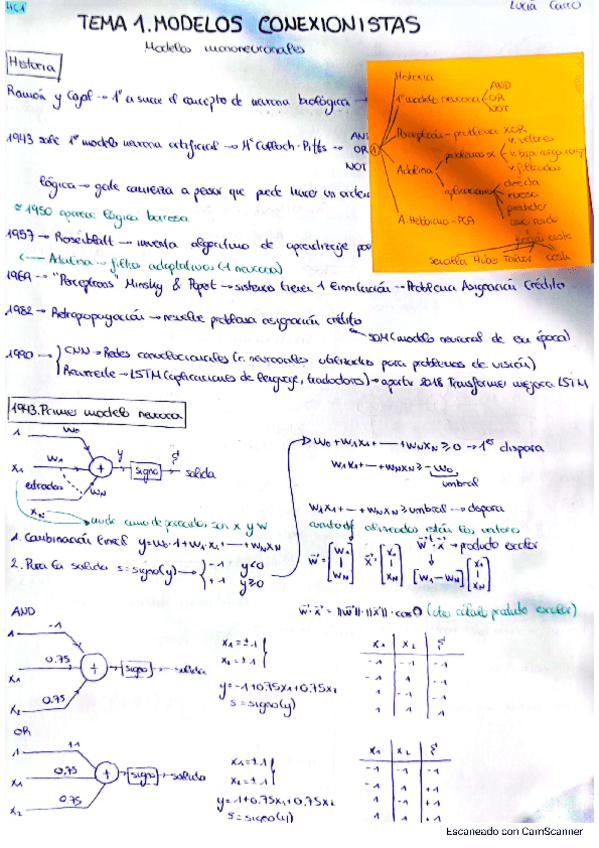 HC1
Lucía Castro
TEMA 1. MODELOS CONEXIONISTAS
Modelos mononeuronales
Historia
Ramón y Cajal → 1º en sacar el concepto de neurona biológica →
1943 sale 1º modelo neurona artificial → McCulloch-Pitts →
AND
OR
NOT
lógica → gente comienza a pensar que puede hacer un orden
≈ 1950 aparece lógica borrosa
1957 → Rosenblatt → inventa algoritmo de aprendizaje por
Adalina → filtros adaptativos (1 neurona)
1969 → "Perceptrons" Minsky & Papet → sistema tienen 1 limitación → Problema Asignación Crédito
1982 → Retropropagación → resuelve problema asignación crédito
SDM (modelo neuronal de su época)
1990 → CNN → Redes convolucionales (r. neuronales utilizadas para problemas de visión)
Recurrente → LSTM (aplicaciones de lenguaje, traductores) → a partir 2018 Transformer mejora LSTM
Historia
1º modelo neurona
AND
OR
NOT
Perceptrón - problema XOR
Adalina
problemas
v. valores
v. filtrados
aplicaciones
directa
inversa
predictor
A. Hebbiano - PCA
1943. Primer modelo neurona
1
w0
x1
w1
+
y
signo
s
salida
entradas
wN
xN
1. Combinación lineal y = w0·1 + w1·x1 + — + wN xN
2. Para la salida s = signo(y) → -1 y<0
+1 y≥0
w0 + w1x1 + — + wN xN ≥ 0 → 1 dispara
w1x1 + — + wN xN ≥ -w0
umbral
w1x1 + — + wN xN ≥ umbral → dispara
cuanto + alineados están los vectores
w = [w1 | wN] x = [x1 | xN] w·x → producto escalar
[w1 — wN] [x1 | xN]
w·x = ||w||·||x||·cos θ (otro cálculo producto escalar)
AND
1
-1
x1
0.75
x2
0.75
+
signo
salida
x1 = ±1
x2 = ±1
y = -1+0.75x1+0.75x2
s = signo(y)
x1 x2 s
-1 -1 -1
-1 1 -1
1 -1 -1
1 1 1
OR
1
+1
x1
0.75
x2
0.75
+
signo
salida
x1 = ±1
x2 = ±1
y = 1+0.75x1+0.75x2
s = signo(y)
x1 x2 s
-1 -1 -1
-1 1 +1
1 -1 +1
1 1 +1
Escaneado con CamScanner